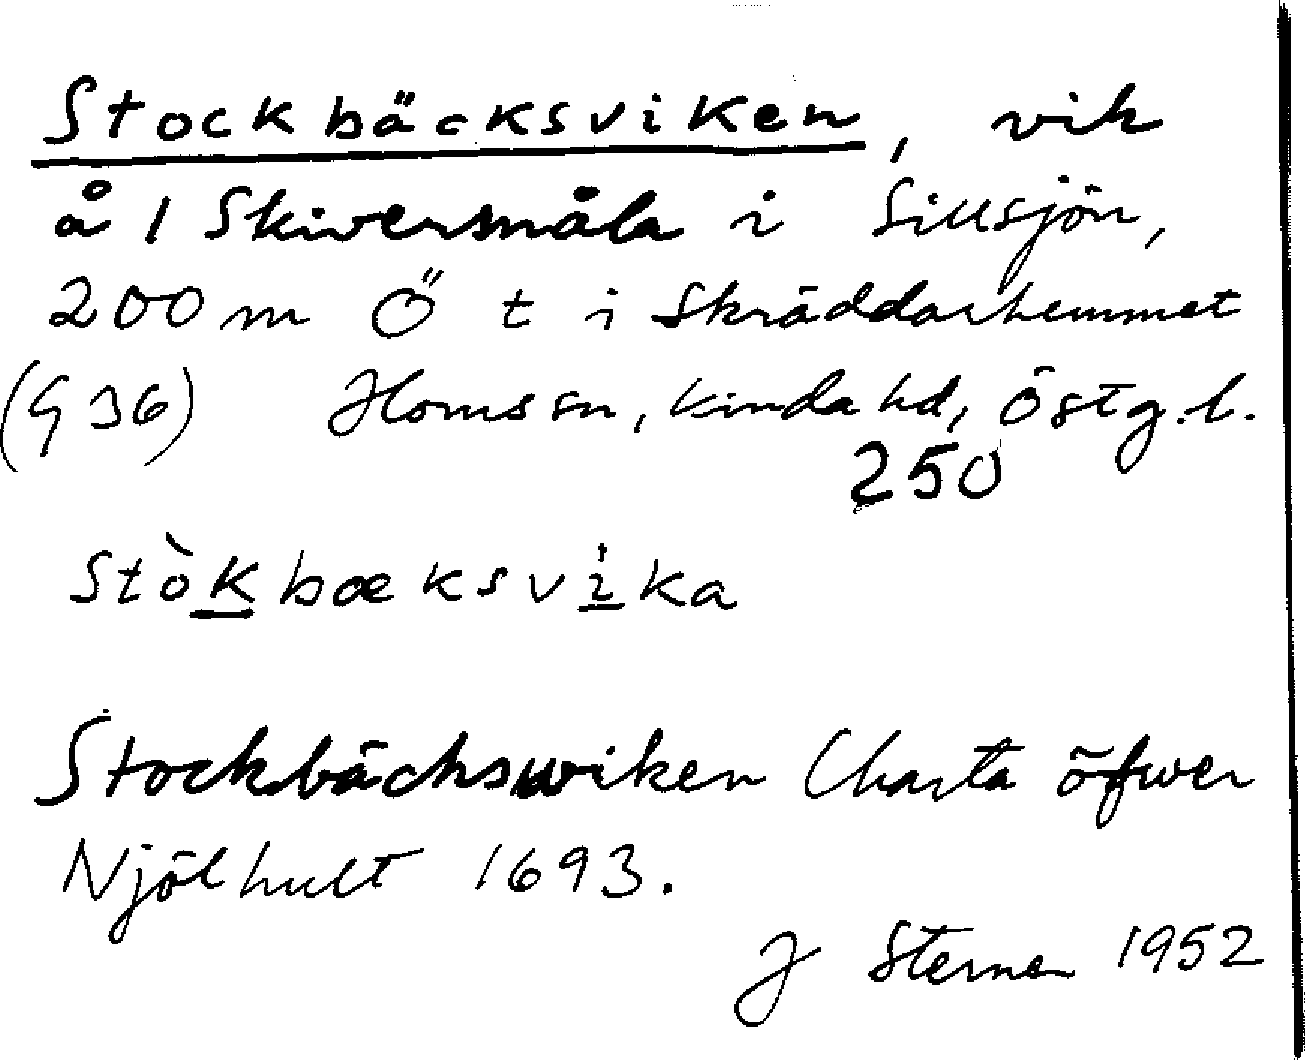 Stockbäcksviken, vik
å 1 Skiversmåla i Sillsjön,
200 m Ö t i Skräddarhemmet
(G 36) Horns sn, Kinda hd, Östg.l.
250
Stòkbæksvika
Stockbächswiken Charta öfwer
Njölhult 1693.
J Sterner 1952